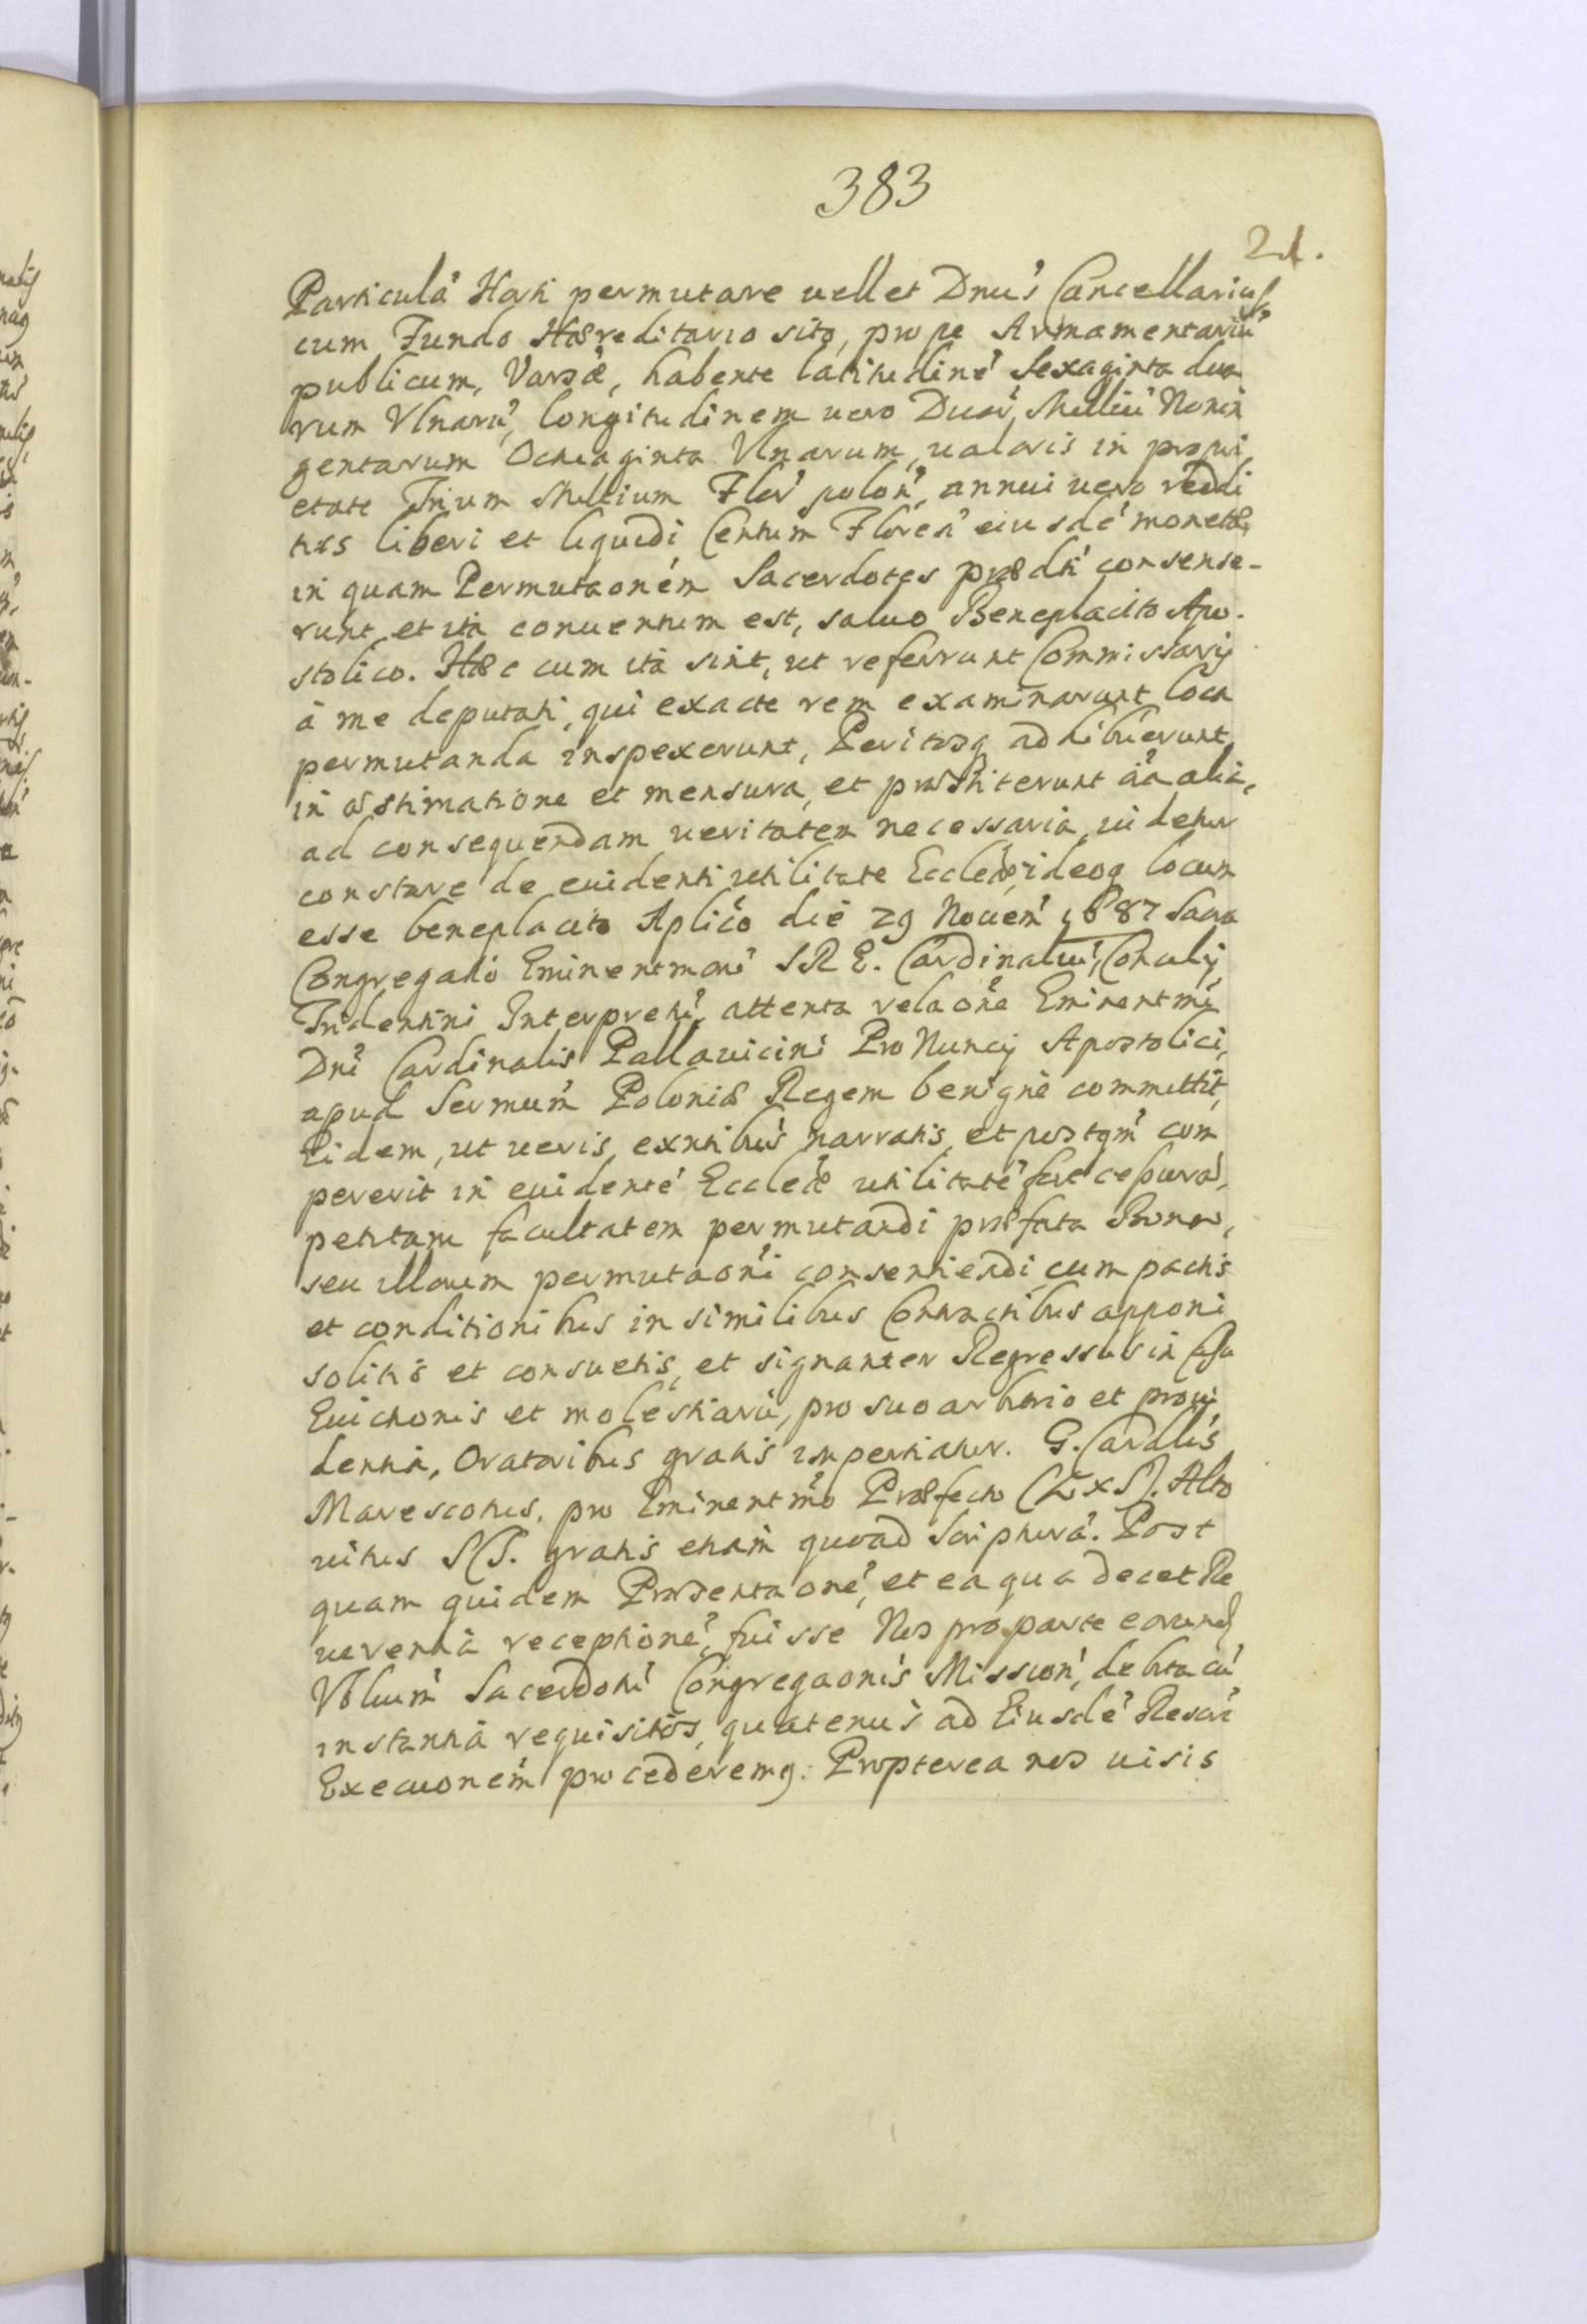 383
21.
Particulã Horti permutare uellet Dnus Cancellarius
cum Fundo Hæreditario sito, prope Armamentariũ
publicum, Varsæ, habente latitudinẽ Sexaginta dua
rum Vlnarũ, longitudinem uero Duorũ Milliũ Nonin
gentarum Octuaginta Vlnarum, ualoris in propri
etate Trium Millium Flor polon, annui uero reddi
tus liberi et liquidi Centum Floren eiusdẽ monetæ,
in quam Permutaonem Sacerdotes prædti consense-
runt, et ita conuentum est, saluo Beneplacito Apo-
stolico. Hæc cum ità sint, ut referrunt Commissarij
à me deputati, qui exacte rem examinarunt loca
permutanda inspexerunt, Peritosq adhibuerunt
in æstimatione et mensura, et præstiterunt oia alia,
ad consequendam ueritatem necessaria, uidetur
constare de euidenti utilitate Ecclæ, ideoq locum
esse beneplacito Aplico die 29 Nouem 1687 Sacra
Congregatio Eminentmorũ S R E. Cardinaliũ, Concilij
Tridentini Interpretũ, attenta relaone Eminentmi
Dni Cardinalis Pallauicini Pro Nuncij Apostolici,
apud Sermum Poloniæ Regem benignè committit,
Eidem, ut ueris, exntibus narratis, et postqm com
pererit in euidentẽ Ecclæ utilitatẽ fore cessurã,
petitam facultatem permutandi præfata Bona,
seu illorum permutaoni consentiendi, cum pactis
et conditionibus in similibus Contractibus apponi
solitis et consuetis, et signanter Regressus in casu
Euictionis et molestiarũ, pro suo arbitrio et proui
dentia, Oratoribus gratis impertiatur. G. Cardlis
Marescotus, pro Eminentmo Præfecto (L x S). Alto
uitus S C S. gratis etiam quoad Scripturã. Post
quam quidem Præsentaonẽ, et ea qua decet Re
uerentia receptionẽ, fuisse Nos pro parte eorund
Vblium Sacerdotũ Congregaonis Mission, debita cũ
instantia requisitos, quatenus ad Eiusdẽ Rescri
Execuonem procederemq. Propterea nos uisis